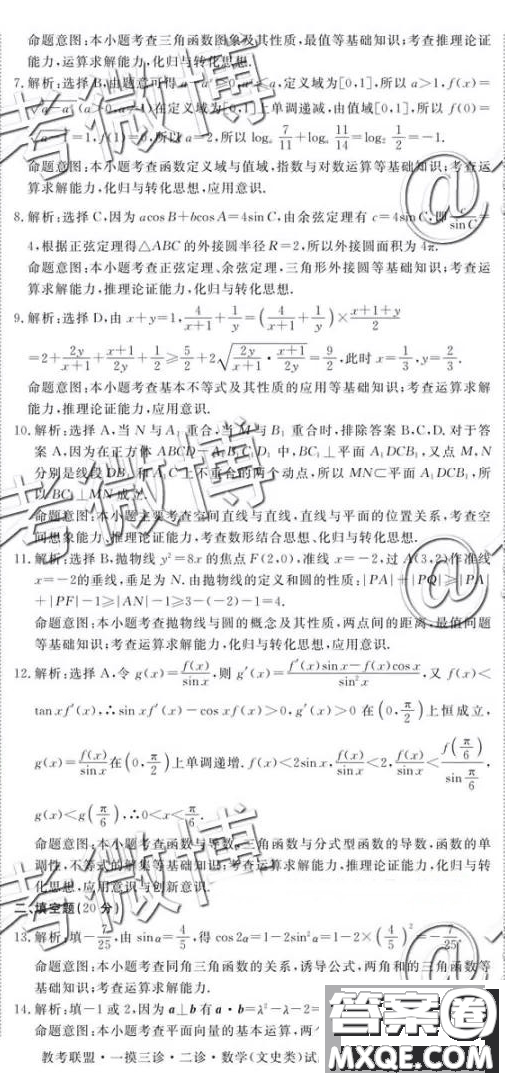 命题意图:本小题考查三角函数图象及其性质,最值等基础知识;考查推理论证
能力,运算求解能力,化归与转化思想.
7.解析:选择B,由题意可得 定义域为[0,1],所以a>1,f(x)=
在定义域为[0,1]上单调递减,由值域[0,1],所以f(0)=
=1,f(1)=0,所以a=2,所以log_a 7/11+log_a 11/14=log_2 1/2=-1.
命题意图:本小题考查函数定义域与值域,指数与对数运算等基础知识;考查运
算求解能力,化归与转化思想,应用意识.
8.解析:选择C,因为acosB+bcosA=4sinC,由余弦定理有c=4sinC,即c/sinC=
4,根据正弦定理得△ABC的外接圆半径R=2,所以外接圆面积为4π.
命题意图:本小题考查正弦定理、余弦定理,三角形外接圆等基础知识;考查运
算求解能力,推理论证能力,化归与转化思想.
9.解析:选择D,由x+y=1,4/(x+1)+1/y=(4/(x+1)+1/y)×(x+1+y)/2
=2+2y/(x+1)+(x+1)/2y+1/2≥5/2+2√(2y/(x+1)·(x+1)/2y)=9/2,此时x=1/3,y=2/3.
命题意图:本小题考查基本不等式及其性质的应用等基础知识;考查运算求解
能力,推理论证能力,应用意识.
10.解析:选择A,当N与A₁重合,当M与B₁重合时,排除答案B,C,D.对于答
案A,因为在正方体ABCD-A₁B₁C₁D₁中,BC₁⊥平面A₁DCB₁,又点M,N
分别是线段DB₁和A₁C上不重合的两个动点,所以MN⊂平面A₁DCB₁,所
以BC₁⊥MN成立.
命题意图:本小题主要考查空间直线与直线,直线与平面的位置关系,考查空
间想象能力、推理论证能力,考查数形结合思想、化归与转化思想.
11.解析:选择B,抛物线y²=8x的焦点F(2,0),准线x=-2,过A(3,2)作准线
x=-2的垂线,垂足为N.由抛物线的定义和圆的性质:|PA|+|PQ|≥|PA|
+|PF|-1≥|AN|-1≥3-(-2)-1=4.
命题意图:本小题考查抛物线与圆的概念及其性质,两点间的距离,最值问题
等基础知识;考查运算求解能力,化归与转化思想,应用意识.
12.解析:选择A,令g(x)=f(x)/sinx,则g′(x)=(f′(x)sinx-f(x)cosx)/sin²x,又f(x)<
tanxf′(x),∴sinxf′(x)-cosxf(x)>0,g′(x)>0在(0,π/2)上恒成立,
g(x)=f(x)/sinx在(0,π/2)上单调递增.f(x)<2sinx,f(x)/sinx<2,f(x)/sinx<f(π/6)/sin π/6,
g(x)<g(π/6),∴0<x<π/6.
命题意图:本小题考查函数与导数,三角函数与分式型函数的导数,函数的单
调性,不等式的解集等基础知识;考查运算求解能力,推理论证能力,化归与转
化思想,应用意识与创新意识.
二、填空题(20分)
13.解析:填-7/25,由sinα=4/5,得cos2α=1-2sin²α=1-2×(4/5)²=-7/25.
命题意图:本小题考查同角三角函数的关系,诱导公式,两角和的三角函数等
基础知识;考查运算求解能力.
14.解析:填-1或2,因为a⊥b有a·b=λ²-λ-2=
命题意图:本小题考查平面向量的基本运算,两
教考联盟·一摸三诊·二诊·数学(文史类)试
考微博
@
考微博
@
考微博
@
答案圈
MXQE.COM